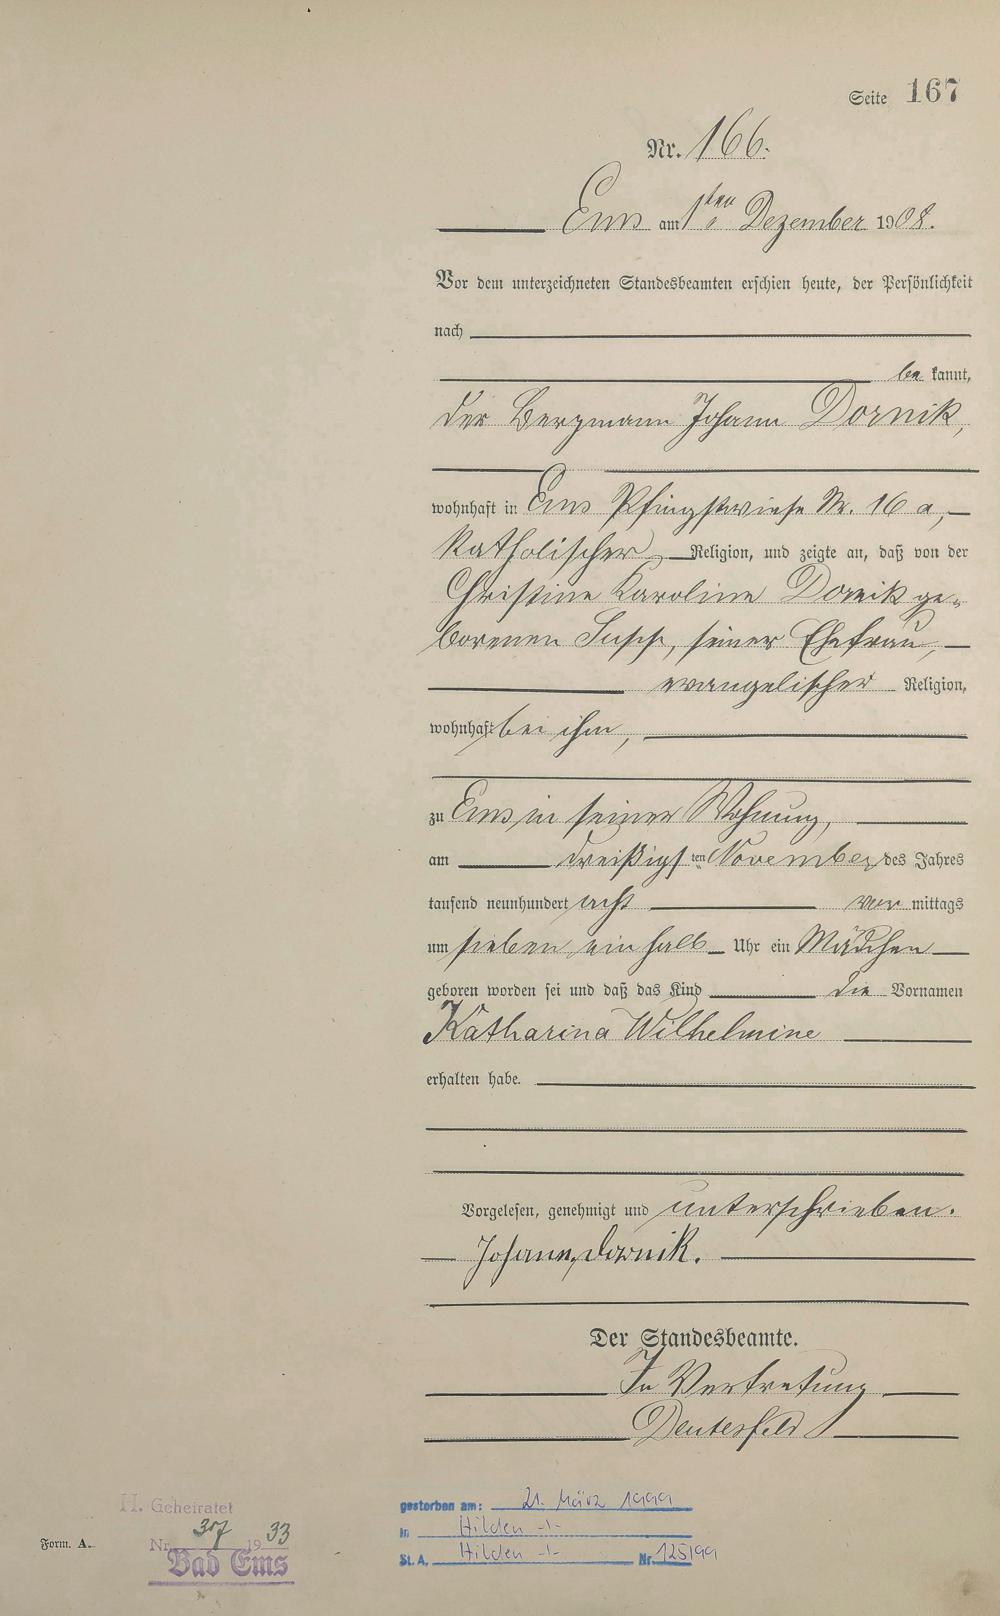 Seite 167
Nr. 166.
Ems am 1ten Dezember 1908.
Vor dem unterzeichneten Standesbeamten erschien heute, der Persönlichkeit
nach
be kannt,
der Bergmann Johann Dornik,
wohnhaft in Ems Pfingstwiese Nr. 16 a,
katholischer Religion, und zeigte an, daß von der
Christine Karoline Dornik ge-
borenen, seiner Ehefrau,
evangelischer Religion,
wohnhaft bei ihm,
zu Ems in seiner Wohnung,
am dreißigsten November des Jahres
tausend neunhundert acht vor mittags
um sieben einhalb Uhr ein Mädchen
geboren worden sei und daß das Kind die Vornamen
Katharina Wilhelmine
erhalten habe.
Vorgelesen, genehmigt und unterschrieben.
Johann Dornik.
Der Standesbeamte.
In Vertretung
H. Geheiratet
Nr. 1933
Bad Ems
Form. A.
gestorben am: 21. März 1999
in Hilden -/-
St. A. Hilden -/- Nr. 125/99